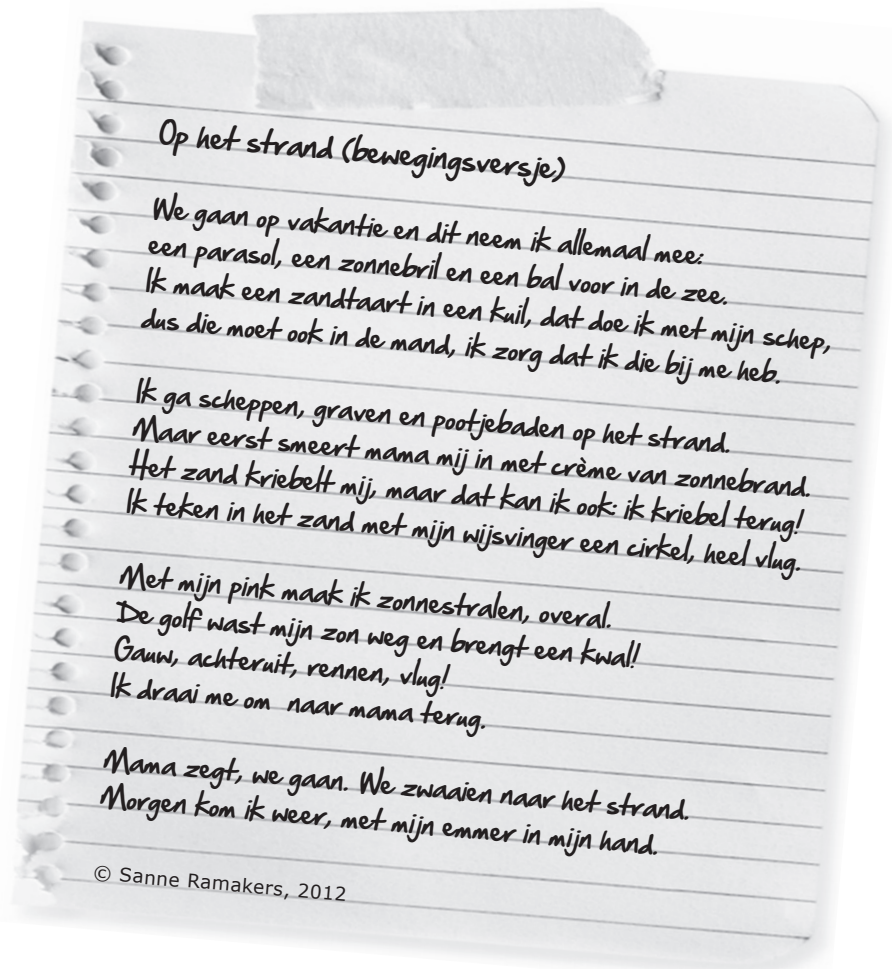 Op het strand (bewegingsversje)
We gaan op vakantie en dit neem ik allemaal mee:
een parasol, een zonnebril en een bal voor in de zee.
Ik maak een zandtaart in een kuil, dat doe ik met mijn schep,
dus die moet ook in de mand, ik zorg dat ik die bij me heb.
Ik ga scheppen, graven en pootjebaden op het strand.
Maar eerst smeert mama mij in met crème van zonnebrand.
Het zand kriebelt mij, maar dat kan ik ook: ik kriebel terug!
Ik teken in het zand met mijn wijsvinger een cirkel, heel vlug.
Met mijn pink maak ik zonnestralen, overal.
De golf wast mijn zon weg en brengt een kwal!
Gauw, achteruit, rennen, vlug!
Ik draai me om naar mama terug.
Mama zegt, we gaan. We zwaaien naar het strand.
Morgen kom ik weer, met mijn emmer in mijn hand.
© Sanne Ramakers, 2012